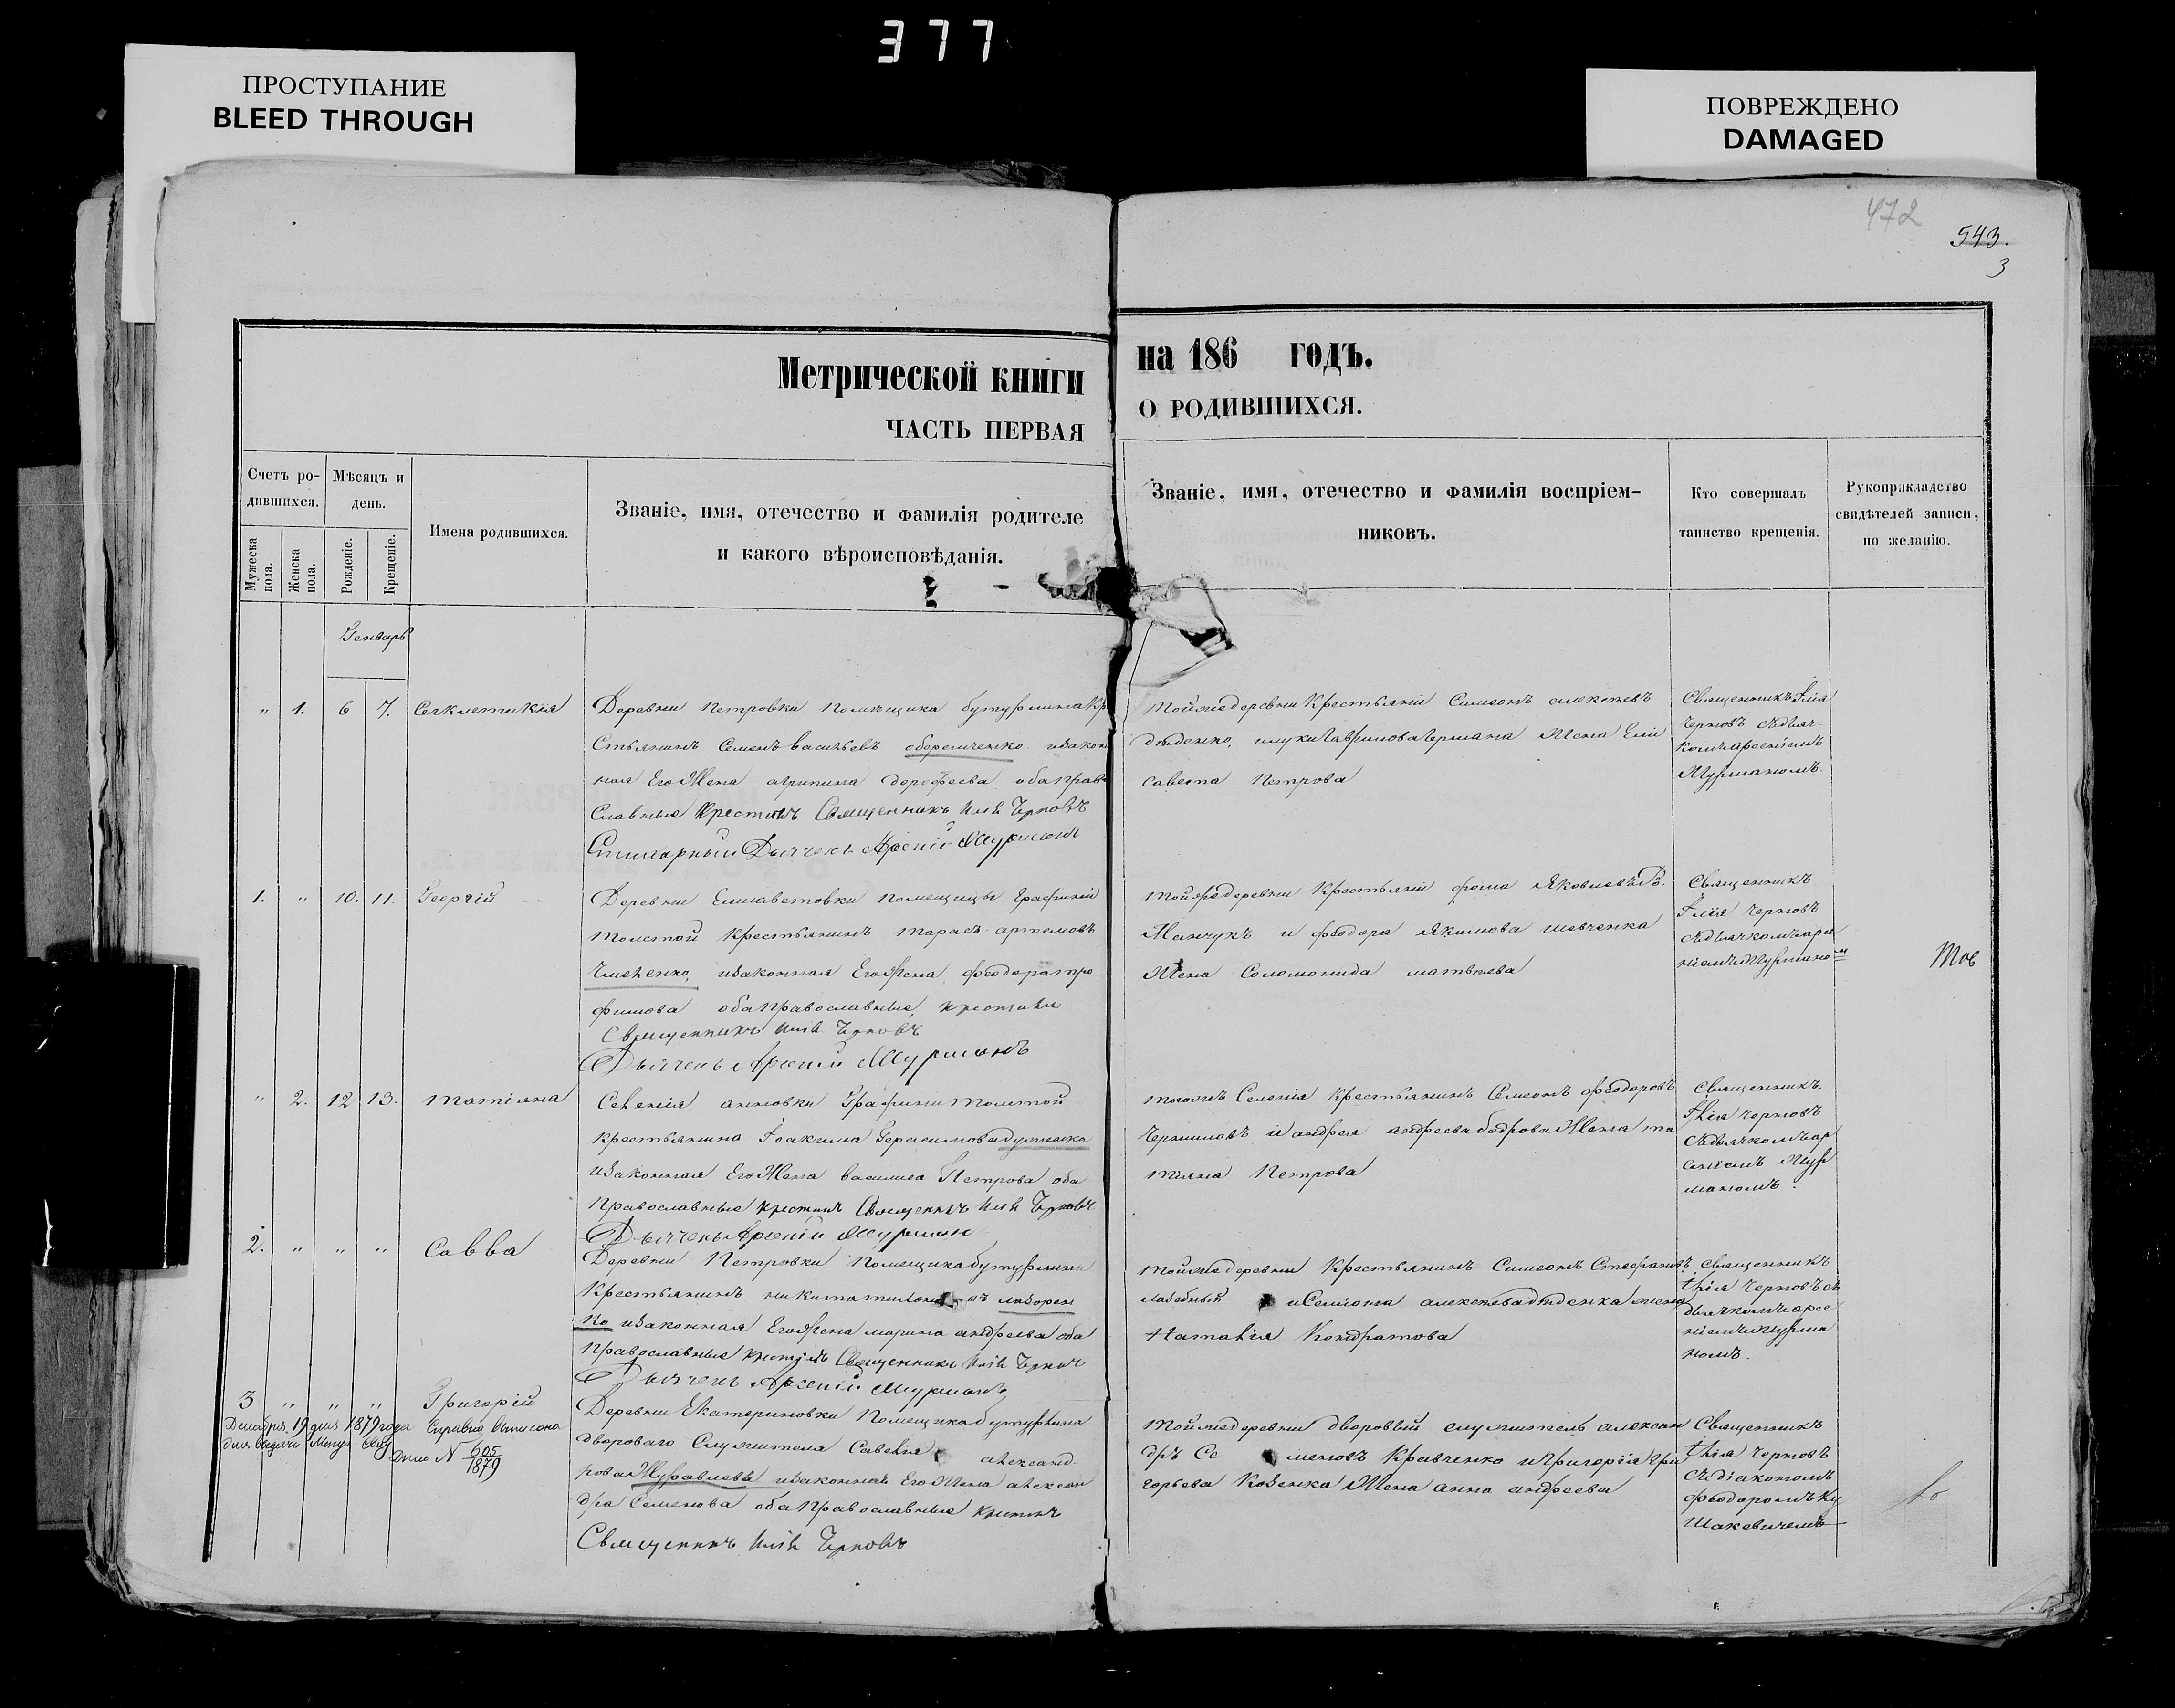 377
ПРОСТУПАНИЕ
BLEED THROUGH
ПОВРЕЖДЕНО
DAMAGED
472
543.
3
Метрической книги
на 186 годъ.
ЧАСТЬ ПЕРВАЯ
О РОДИВШИХСЯ.
Счетъ ро-
дившихся.
Мужеска
пола.
Женска
пола.
Мѣсяцъ и
день.
Рожденіе.
Крещеніе.
Имена родившихся.
Званіе, имя, отечество и фамилія родителе
и какого вѣроисповѣданія.
Званіе, имя, отечество и фамилія воспріем-
никовъ.
Кто совершалъ
таинство крещенія.
Рукоприкладство
свидѣтелей записи,
по желанію.
Генварь
" 1. 6 7.
Деревни Петровки Помѣщика бутурлина Кр
стьянинъ Семенъ васильевъ
ная Его Жена дорофеева обаправо
славные Священникъ Илія Черновъ
Дьячекъ Арсеній Мурманъ
Тойжедеревни Крестьяни Симеонъ алексѣевъ
дѣденко, Жена Ели
савета Петрова
Священникъ Илія
Черновъ сдьяч-
комъ арсеніемъ
Мурманомъ.
1. " 10. 11. Георгій
Деревни Елисаветовки помещицы Графини
толстой крестьянинъ тарасъ артемовъ
изаконная Его Жена феодора тро
фимова обаправославные
Священникъ Илія Черновъ
Дьячекъ Арсеній Мурманъ
Тойжедеревни Крестьяни фома Яковлевъ Ро-
манчукъ и феодора Якимова шевченка
Жена Соломонида матвѣева
Священникъ
Илія Черновъ
сдьячкомъ арсе
ніемъ Мурмано м
" 2. 12 13. татіяна
Селенія анновки Графини толстой
крестьянина Іоакима Герасимова
изаконная Его Жена василиса Петрова оба
православные Священникъ Илія Черновъ
Дьячекъ Арсеній Мурман
тогожъ Селенія Крестьянинъ Симеонъ феодоровъ
и андрея андреева бодрова Жена та
тіяна Петрова
Священникъ
Илія Черновъ
сдьячкомъ ар
сеніемъ Мур
маномъ.
2. " " " Савва
Деревни Петровки Помещика бутурлина
Крестьянинъ никита лазорен
ко изаконная Его Жена марина андреева оба
православные Священникъ Илія Чернов
Дьячекъ Арсеній Мурманъ
тойжедеревни Крестьянинъ Симеонъ Стефановъ
и Симеона алексеева дѣденка жена
Наталія Кондратова
Священникъ
Илія Черновъ съ
дьячкомъ арсе
ніемъ Мурма
номъ.
3 " " " Григорій
Декабря 19 дня 1879 года
для выдачи
Дѣло N 605/1879
Деревни Екатериновки Помещика бутурлина
двороваго Служителя Савелія александ-
рова Журавлева изаконная Его Жена алексан
дра Семенова обаправославные
Священникъ Илія Черновъ
тойжедеревни дворовый служитель алексан
дръ Се меновъ Кравченко и Григорія Гри
горьева Козенка Жена анна андреева
Священникъ
Илія Черновъ
съ діакономъ
феодоромъ Ку
шакевичемъ